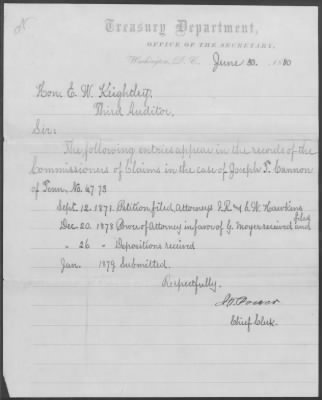 Treasury Department,
OFFICE OF THE SECRETARY,
Washington, D. C. June 30. 1880
Hon. E. W. Keightley,
Third Auditor,
Sir:
The following entries appear in the records of the
Commissioners of Claims in the case of Joseph T. Cannon
of Tenn, No. 6773
Sept. 12. 1871. Petition filed Attorneys & W. Hawkins
Dec. 20. 1878 Power of Attorney in favor of G. Moyer received and filed
" 26 " Depositions received
Jan. 1879 Submitted.
Respectfully.
Chief Clerk.